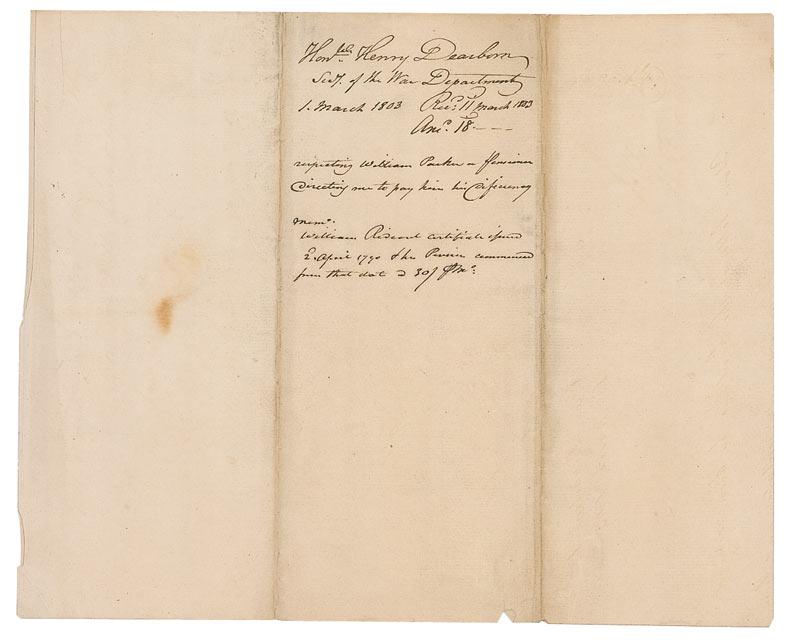 Hon.ble Henry Dearborn
Secy. of the War Department
1. March 1803 Rec.d 11 March 1803
Ans.d 18
respecting William Parker a Pensioner
directing me to pay him his deficiency
Mem.o
William certificate issued
2 April 1790 & his Pension commenced
from that date